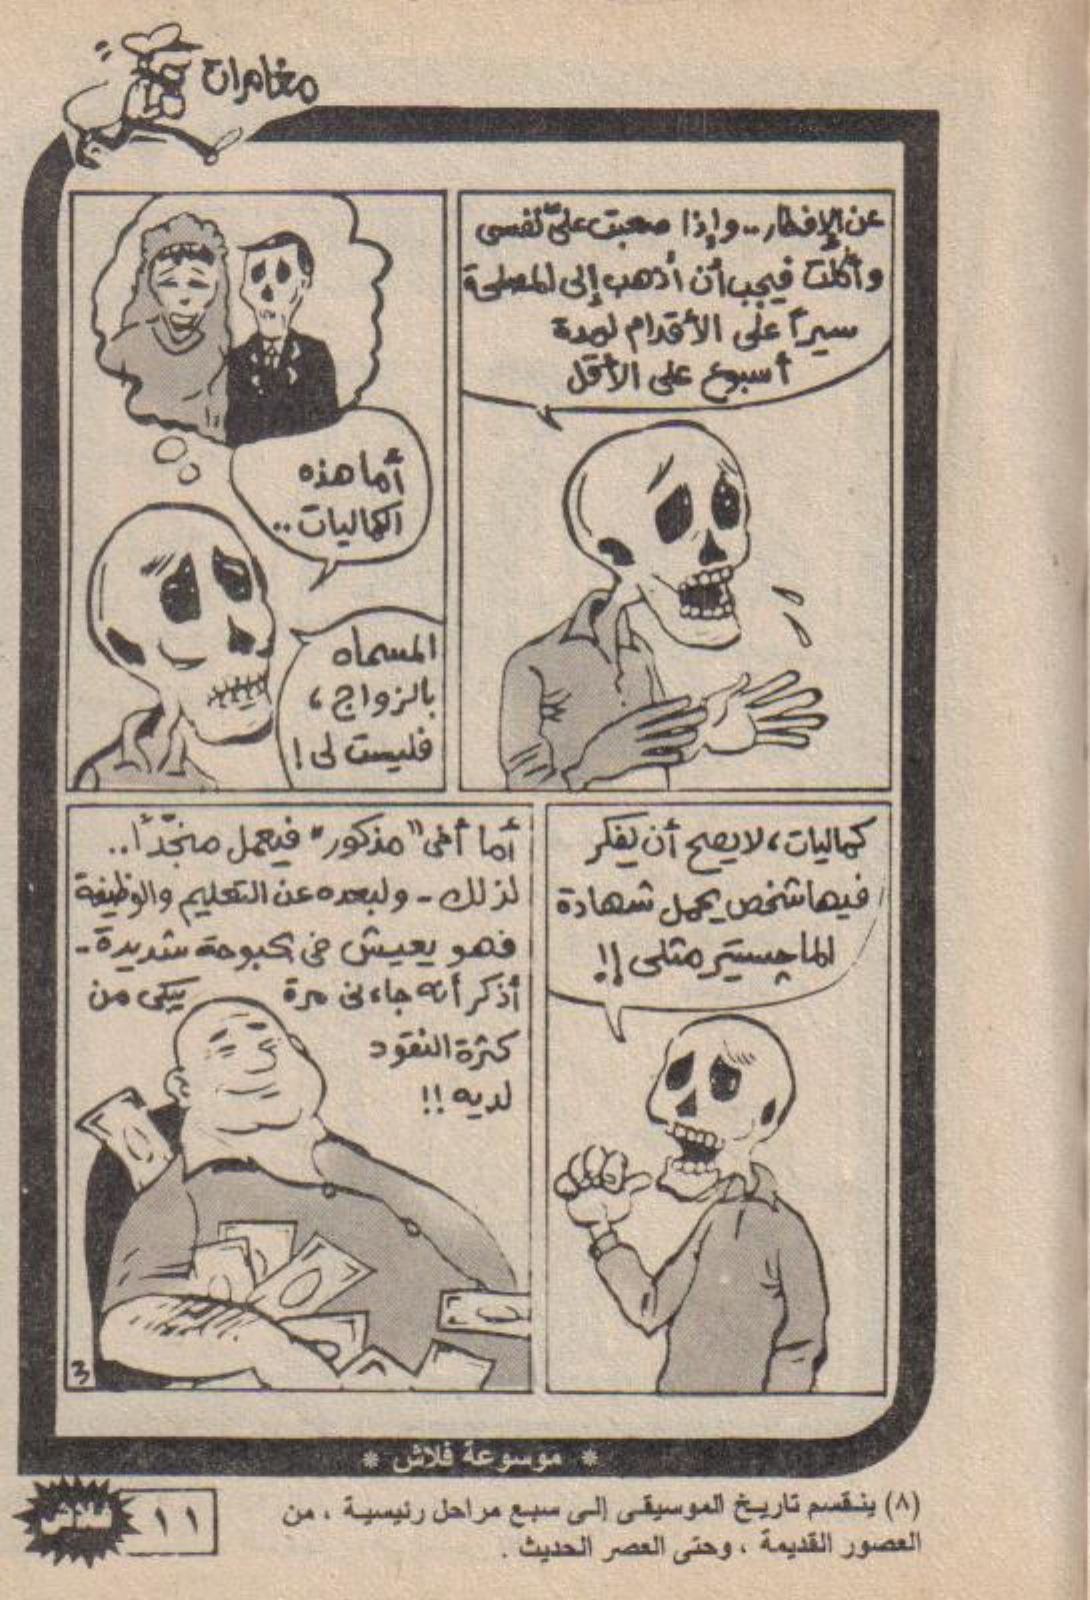 مغامرات
عن الإفطار.. وإذا صعبت علىّ نفسى
وأكلت فيجب أن أذهب إلى المصلحة
سيراً على الأقدام لمدة
أسبوع على الأقل
أما هذه
الكماليات..
المسماه
بالزواج،
فليست لى!
كماليات، لا يصح أن يفكر
فيها شخص يحمل شهادة
الماچستير مثلى!!
أما أخى "مدكور" فيعمل منجّداً..
لذلك - ولبعده عن التعليم والوظيفة
فهو يعيش فى بحبوحة شديدة -
أذكر أنه جاءنى مرة يبكى من
كثرة النقود
لديه!!
3
* موسوعة فلاش *
(٨) ينقسم تاريخ الموسيقى إلى سبع مراحل رئيسية ، من
العصور القديمة ، وحتى العصر الحديث .
١١
فلاش